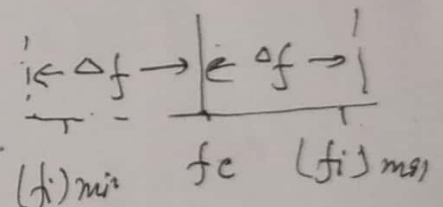 ← Δf → ← Δf →
(fi)min fc (fi)max